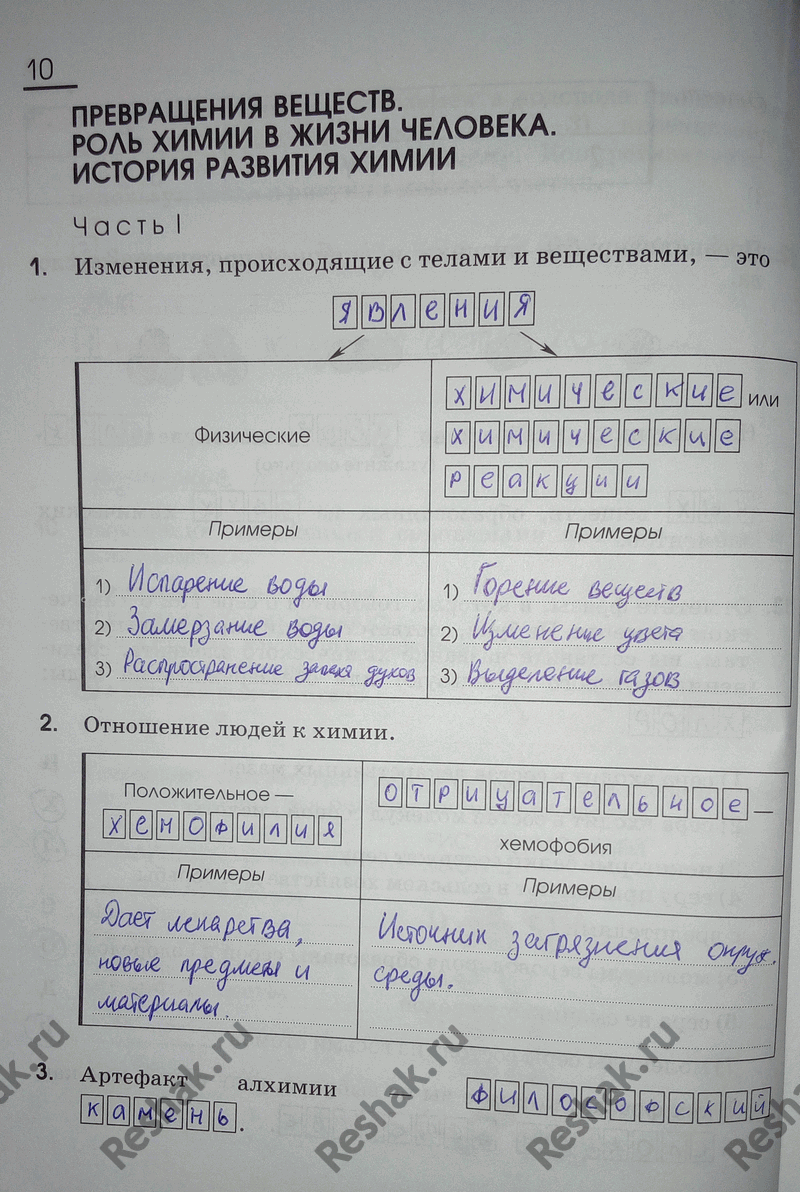 10
ПРЕВРАЩЕНИЯ ВЕЩЕСТВ.
РОЛЬ ХИМИИ В ЖИЗНИ ЧЕЛОВЕКА.
ИСТОРИЯ РАЗВИТИЯ ХИМИИ
Часть I
1. Изменения, происходящие с телами и веществами, — это
явления
химические или
Физические
химические
реакции
Примеры
Примеры
1) Испарение воды
2) Замерзание воды
3) Распространение запаха духов
1) Горение веществ
2) Изменение цвета
3) Выделение газов
2. Отношение людей к химии.
Положительное —
хемофилия
отрицательное —
хемофобия
Примеры
Примеры
Дает лекарства,
новые предметы и
материалы.
Источник загрязнения окруж.
среды.
3. Артефакт алхимии — философский
камень.
Reshak.ru
Reshak.ru
Reshak.ru